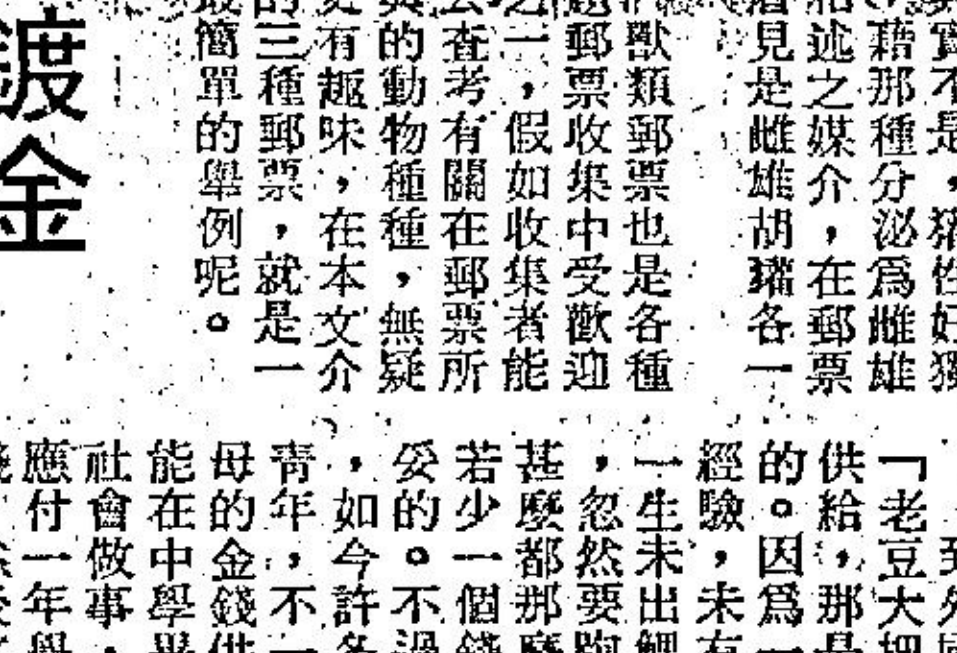 實不是，
藉那種分泌爲雌雄
述之媒介，在郵票
見是雌雄胡各一
獸類郵票也是各種
郵票收集中受歡迎
之一，假如收集者能
去查考有關在郵票所
的動物種種，無疑
有趣味，在本文介
的三種郵票，就是一
最簡單的舉例呢。
鍍金
「老豆大把
供給，那是
的。因爲一
經驗，未有
一生未出
，忽然要跑
甚麼都那麼
若少一個錢
妥的。不過
，如今許多
青年，不一
母的金錢供
能在中學畢
社會做事，
應付一年學